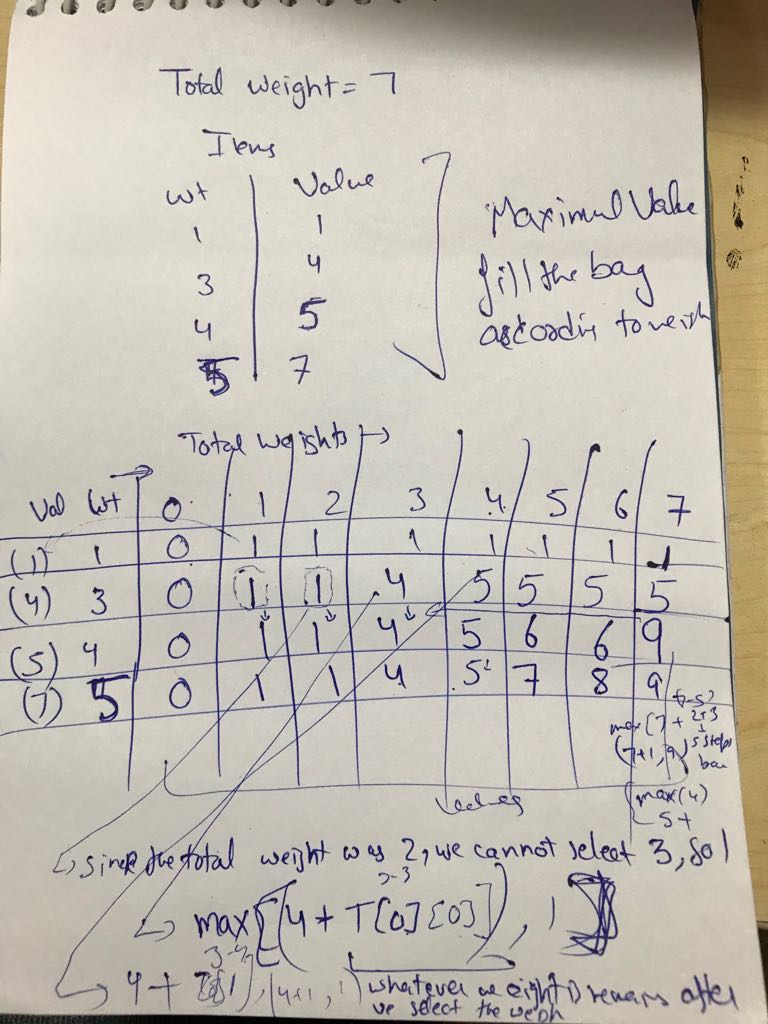 Total weight = 7
Items
wt Value
1 1
3 4
4 5
5 7
Maximul Value
fill the bag
according to weigh
Total weights →
Val wt 0 1 2 3 4 5 6 7
(1) 1 0 1 1 1 1 1 1 1
(4) 3 0 1 1 4 5 5 5 5
(5) 4 0 1 1 4 5 6 6 9
(7) 5 0 1 1 4 5 7 8 9
max[7 +
(7+1, 9)
max(4)
5+
Values
since the total weight was 2, we cannot select 3, so 1
3-3
max[(4 + T[0][0]), 1]
4 + (4+1, 1) whatever weight remains after
we select the